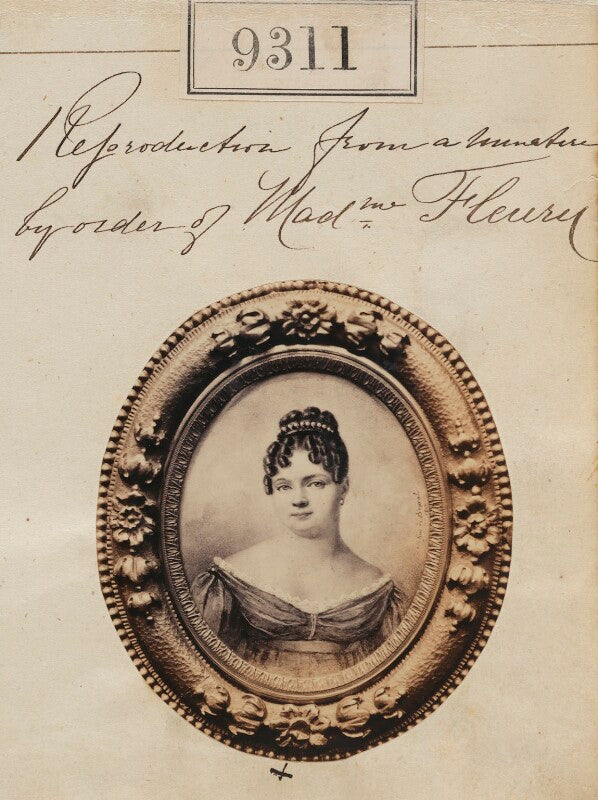 9311
Reproduction from a miniature
by order of Madme Fleury